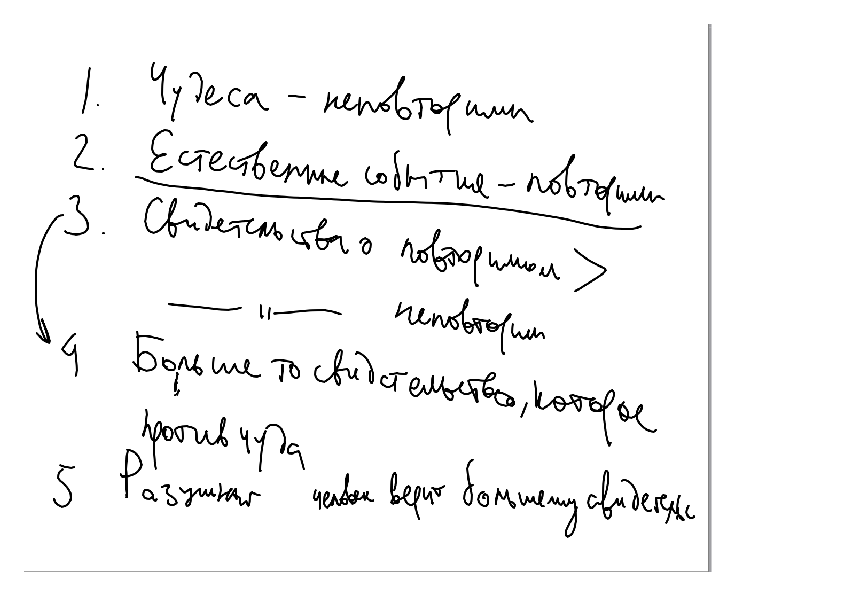 1. Чудеса – неповторимы
2. Естественные события – повторимы
3. Свидетельства о повторимом >
—— " —— неповторим
4 Больше то свидетельство, которое
против чуда
5 Разумный человек верит большему свидетельс